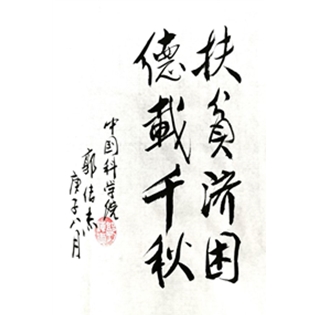 扶貧济困
德載千秋
中国科学院
郭传杰
庚子八月